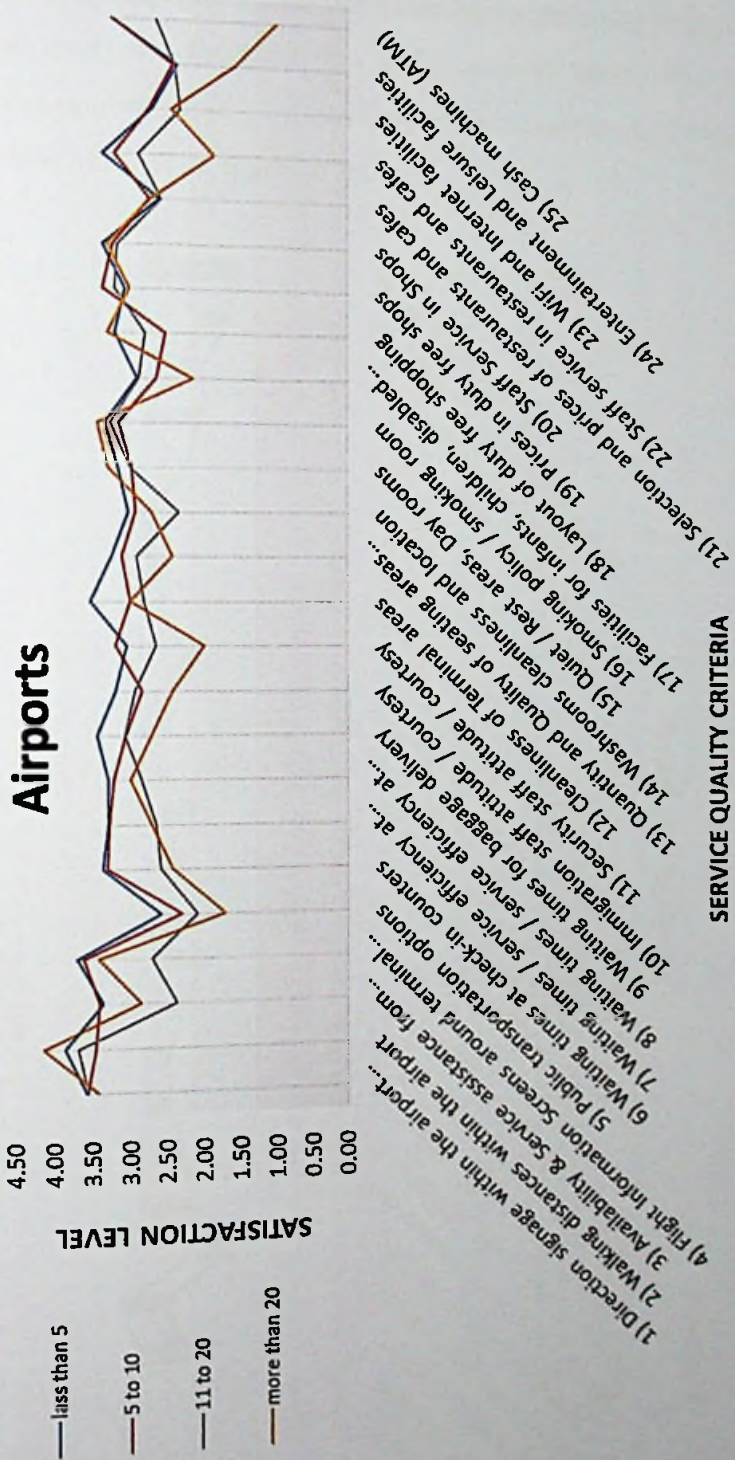 Airports
SATISFACTION LEVEL
4.50
4.00
3.50
3.00
2.50
2.00
1.50
1.00
0.50
0.00
lass than 5
5 to 10
11 to 20
more than 20
1) Direction signage within the airport...
2) Walking distances within the airport
3) Availability & Service assistance from...
4) Flight Information Screens around terminal...
5) Public transportation options
6) Waiting times at check-in counters
7) Waiting times / service efficiency at...
8) Waiting times / service efficiency at...
9) Waiting times for baggage delivery
10) Immigration staff attitude / courtesy
11) Security staff attitude / courtesy
12) Cleanliness of Terminal areas
13) Quantity and Quality of seating areas...
14) Washrooms cleanliness and location
15) Quiet / Rest areas, Day rooms
16) Smoking policy / smoking room
17) Facilities for infants, children, disabled...
18) Layout of duty free shopping
19) Prices in duty free shops
20) Staff Service in Shops
21) Selection and prices of restaurants and cafes
22) Staff service in restaurants and cafes
23) WiFi and Internet facilities
24) Entertainment and Leisure facilities
25) Cash machines (ATM)
SERVICE QUALITY CRITERIA